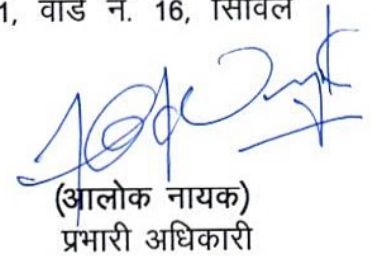 1, वार्ड न. 16, सिविल
(आलोक नायक)
प्रभारी अधिकारी